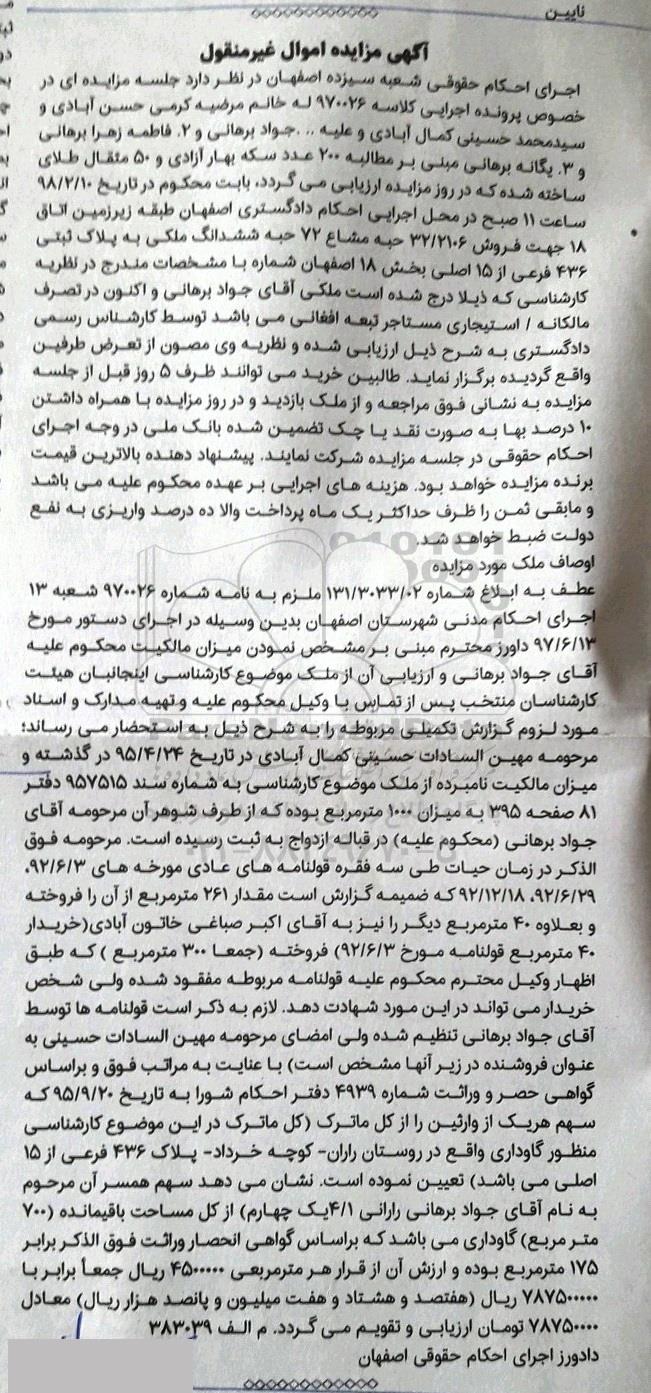 نایین
آگهی مزایده اموال غیرمنقول
اجرای احکام حقوقی شعبه سیزده اصفهان در نظر دارد جلسه مزایده ای در
خصوص پرونده اجرایی کلاسه ۹۷۰۰۲۶ له خانم مرضیه کرمی حسن آبادی و
سیدمحمد حسینی کمال آبادی و علیه .. .جواد برهانی و ۲. فاطمه زهرا برهانی
و ۳. یگانه برهانی مبنی بر مطالبه ۲۰۰ عدد سکه بهار آزادی و ۵۰ مثقال طلای
ساخته شده که در روز مزایده ارزیابی می گردد، بابت محکوم در تاریخ ۹۸/۲/۱۰
ساعت ۱۱ صبح در محل اجرایی احکام دادگستری اصفهان طبقه زیرزمین اتاق
۱۸ جهت فروش ۳۲/۲۱۰۶ حبه مشاع ۷۲ حبه ششدانگ ملکی به پلاک ثبتی
۴۳۶ فرعی از ۱۵ اصلی بخش ۱۸ اصفهان شماره با مشخصات مندرج در نظریه
کارشناسی که ذیلا درج شده است ملکی آقای جواد برهانی و اکنون در تصرف
مالکانه / استیجاری مستاجر تبعه افغانی می باشد توسط کارشناس رسمی
دادگستری به شرح ذیل ارزیابی شده و نظریه وی مصون از تعرض طرفین
واقع گردیده برگزار نماید. طالبین خرید می توانند ظرف ۵ روز قبل از جلسه
مزایده به نشانی فوق مراجعه و از ملک بازدید و در روز مزایده با همراه داشتن
۱۰ درصد بها به صورت نقد یا چک تضمین شده بانک ملی در وجه اجرای
احکام حقوقی در جلسه مزایده شرکت نمایند. پیشنهاد دهنده بالاترین قیمت
برنده مزایده خواهد بود. هزینه های اجرایی بر عهده محکوم علیه می باشد
و مابقی ثمن را ظرف حداکثر یک ماه پرداخت والا ده درصد واریزی به نفع
دولت ضبط خواهد شد.
اوصاف ملک مورد مزایده
عطف به ابلاغ شماره ۱۳۱/۳۰۳۳/۰۲ ملزم به نامه شماره ۹۷۰۰۲۶ شعبه ۱۳
اجرای احکام مدنی شهرستان اصفهان بدین وسیله در اجرای دستور مورخ
۹۷/۶/۱۳ داورز محترم مبنی بر مشخص نمودن میزان مالکیت محکوم علیه
آقای جواد برهانی و ارزیابی آن از ملک موضوع کارشناسی اینجانبان هیئت
کارشناسان منتخب پس از تماس با وکیل محکوم علیه و تهیه مدارک و اسناد
مورد لزوم گزارش تکمیلی مربوطه را به شرح ذیل به استحضار می رساند؛
مرحومه مهین السادات حسینی کمال آبادی در تاریخ ۹۵/۴/۲۴ در گذشته و
میزان مالکیت نامبرده از ملک موضوع کارشناسی به شماره سند ۹۵۷۵۱۵ دفتر
۸۱ صفحه ۳۹۵ به میزان ۱۰۰۰ مترمربع بوده که از طرف شوهر آن مرحومه آقای
جواد برهانی (محکوم علیه) در قباله ازدواج به ثبت رسیده است. مرحومه فوق
الذکر در زمان حیات طی سه فقره قولنامه های عادی مورخه های ۹۲/۶/۳،
۹۲/۶/۲۹، ۹۲/۱۲/۱۸ که ضمیمه گزارش است مقدار ۲۶۱ مترمربع از آن را فروخته
و بعلاوه ۴۰ مترمربع دیگر را نیز به آقای اکبر صباغی خاتون آبادی(خریدار
۴۰ مترمربع قولنامه مورخ ۹۲/۶/۳) فروخته (جمعا ۳۰۰ مترمربع ) که طبق
اظهار وکیل محترم محکوم علیه قولنامه مربوطه مفقود شده ولی شخص
خریدار می تواند در این مورد شهادت دهد. لازم به ذکر است قولنامه ها توسط
آقای جواد برهانی تنظیم شده ولی امضای مرحومه مهین السادات حسینی به
عنوان فروشنده در زیر آنها مشخص است) با عنایت به مراتب فوق و براساس
گواهی حصر و وراثت شماره ۴۹۳۹ دفتر احکام شورا به تاریخ ۹۵/۹/۲۰ که
سهم هریک از وارثین را از کل ماترک (کل ماترک در این موضوع کارشناسی
منظور گاوداری واقع در روستان راران- کوچه خرداد- پلاک ۴۳۶ فرعی از ۱۵
اصلی می باشد) تعیین نموده است. نشان می دهد سهم همسر آن مرحوم
به نام آقای جواد برهانی رارانی ۴/۱یک چهارم) از کل مساحت باقیمانده (۷۰۰
متر مربع) گاوداری می باشد که براساس گواهی انحصار وراثت فوق الذکر برابر
۱۷۵ مترمربع بوده و ارزش آن از قرار هر مترمربعی ۴۵۰۰۰۰۰ ریال جمعاً برابر با
۷۸۷۵۰۰۰۰۰ ریال (هفتصد و هشتاد و هفت میلیون و پانصد هزار ریال) معادل
۷۸۷۵۰۰۰۰ تومان ارزیابی و تقویم می گردد. م الف ۳۸۳۰۳۹
دادورز اجرای احکام حقوقی اصفهان